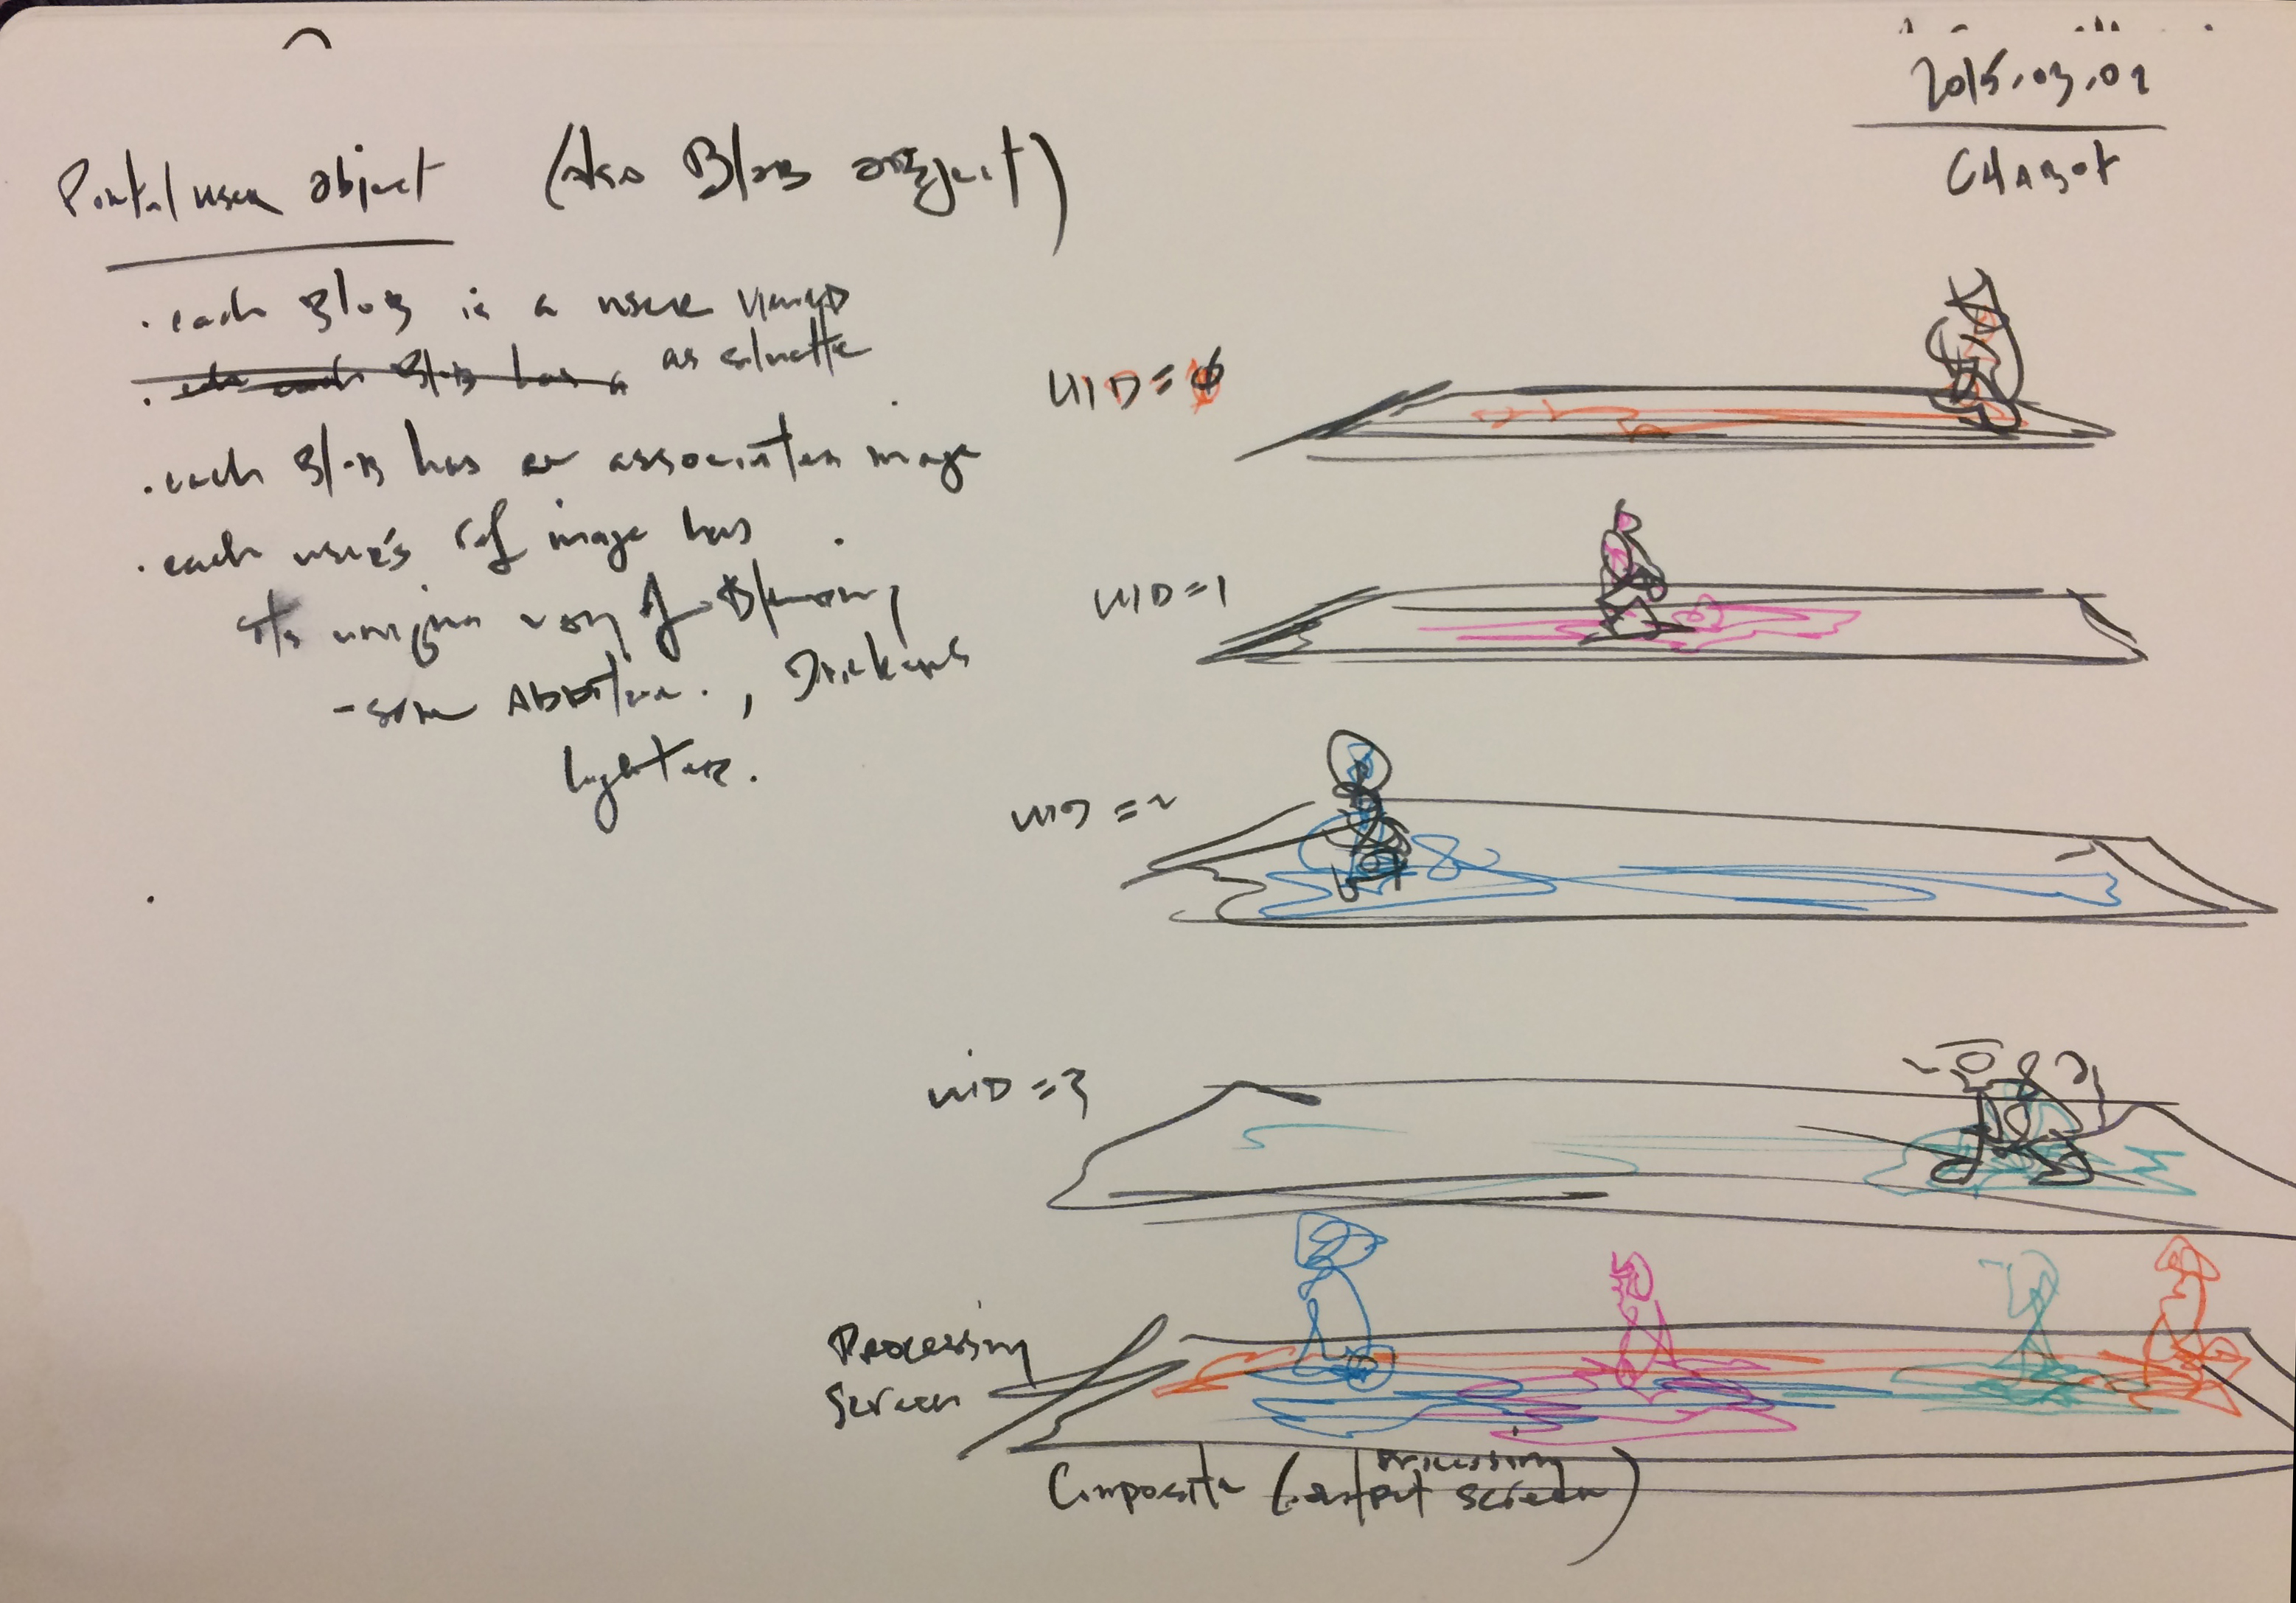 2015.03.02
CHABOT
Portal user object (Also Blob object)
. each Blob is a user
. each Blob has a as siluette
. each Blob has an associated image
. each user's ref image has
its unique way of Blending
- some Additive. , Darkens
lighter.
UID = 0
UID = 1
UID = 2
UID = 3
Processing
Screen
Composite (output Processing screen)